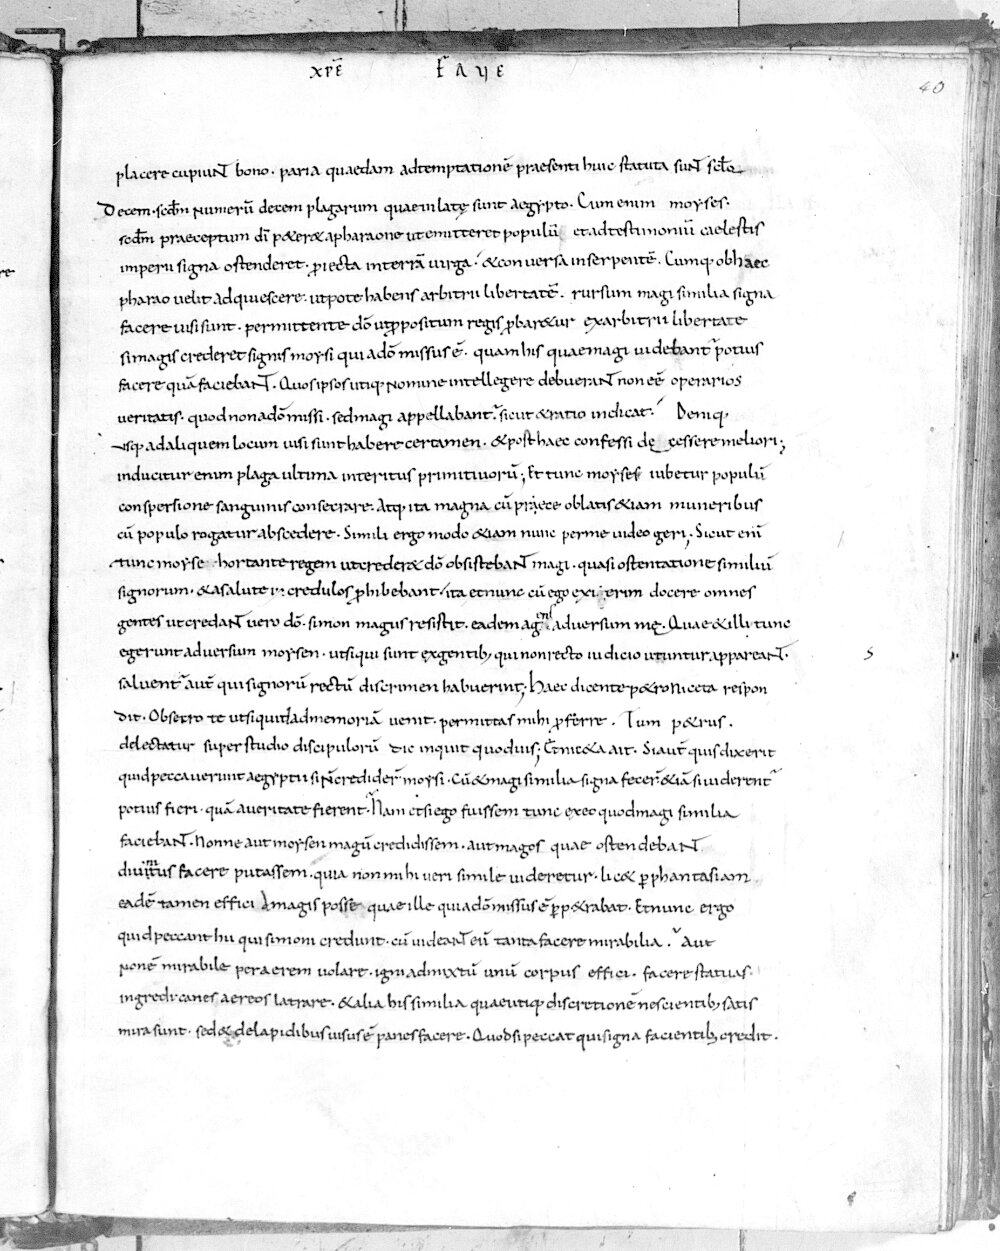 xp̄ē f̄ave
40
placere cupiunt bono. paria quaedam adtemptationē praesenti huic statuta sunt sc̄lo
Decem. scdm̄ numerū decem plagarum quae inlatę sunt aegypto. Cum enim moyses.
scdm̄ praeceptum dī p&er& apharaone ut emitteret populū et adtestimoniū caelestis
imperii signa ostenderet. ꝓiecta interrā uirga. & conuersa inserpentē. Cumq; obhaec
pharao uelit adquiescere. utpote habens arbitrii libertatē. rursum magi similia signa
facere uisi sunt. permittente dō utꝓpositum regis ꝓbar&ur exarbitrii libertate
si magis crederet signis moysi qui adō missus ē. quam his quae magi uidebant̄ potius
facere quā faciebant. Quos ipsos utiq; nomine intellegere debuerant non eē operarios
veritatis. quod non adō missi. sed magi appellabant̄. sicut & ratio indicat. Deniq;
usq; ad aliquem locum uisi sunt habere certamen. & post haec confessi de cessere meliori;
inducitur enim plaga ultima interitus primitiuorū; Et tunc moyses iubetur populū
conspersione sanguinis consecrare. Atq; ita magna cū praece oblatis &iam muneribus
cū populo rogatur abscedere. Simili ergo modo &iam nunc per me uideo geri; Sicut enī
tunc moyse hortante regem ut creder& dō obsistebant magi. quasi ostentatione similiū
signorum. & a salute incredulos ꝓhibebant. ita et nunc cū ego exierim docere omnes
gentes ut credant uero dō. simon magus resistit. eadem agens aduersum mę. Quae & illi tunc
egerunt aduersum moysen. ut si qui sunt exgentib; qui non recto iudicio utuntur appareant.
saluent̄ aut̄ qui signorū rectū discrimen habuerint; Haec dicente p&ro Niceta respon
dit. Obsecro te ut si quid ad memoriā uenit. permittas mihi ꝓferre. Tum p&rus.
delectatur super studio discipulorū dic inquit quoduis; Et nic&a ait. Si aut̄ quis dixerit
quid peccauerunt aegyptii si n̄ credider̄ moysi. Cū & magi similia signa fecer̄ &iā si uiderent̄
potius fieri. quā a ueritate fierent. Nam etsi ego fuissem tunc ex eo quod magi similia
faciebant. Nonne aut moysen magū credidissem. aut magos quae ostendebant
diuinitus facere putassem. quia non mihi ueri simile uideretur. lic& ꝑ phantasiam
eadē tamen effici a magis posse quae ille qui adō missus ē ꝑp&rabat. Et nunc ergo
quid peccant hii qui simoni credunt. cū uideant eū tanta facere mirabilia. Aut
non ē mirabile per aerem uolare. igni admixtū unū corpus effici. facere statuas
ingredi. canes aereos latrare. & alia his similia quae utiq; discretionē nescientib; satis
mira sunt. sed & de lapidibus uisus ē panes facere. Quod si peccat qui signa facientib; credit.
S